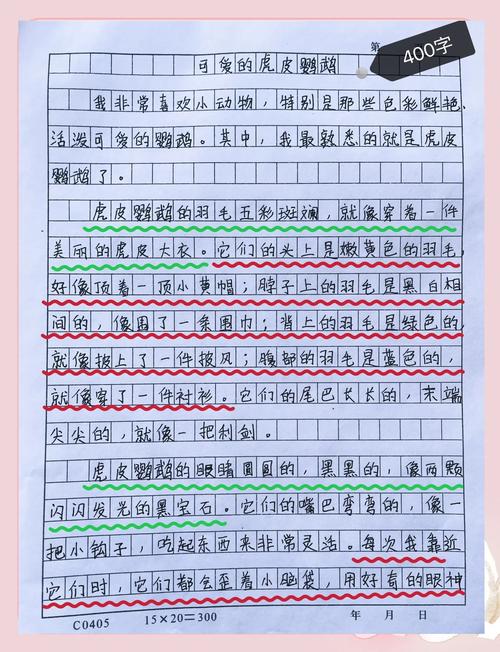 第
400字
可爱的虎皮鹦鹉
我非常喜欢小动物，特别是那些色彩鲜艳、
活泼可爱的鹦鹉。其中，我最熟悉的就是虎皮
鹦鹉了。
虎皮鹦鹉的羽毛五彩斑斓，就像穿着一件
美丽的虎皮大衣。它们的头上是嫩黄色的羽毛，
好像顶着一顶小黄帽；脖子上的羽毛是黑白相
间的，像围了一条围巾；背上的羽毛是绿色的，
就像披上了一件披风；腹部的羽毛是蓝色的，
就像穿了一件衬衫。它们的尾巴长长的，末端
尖尖的，就像一把利剑。
虎皮鹦鹉的眼睛圆圆的，黑黑的，像两颗
闪闪发光的黑宝石。它们的嘴巴弯弯的，像一
把小钩子，吃起东西来非常灵活。每次我靠近
它们时，它们都会歪着小脑袋，用好奇的眼神
C0405 15×20=300 年 月 日